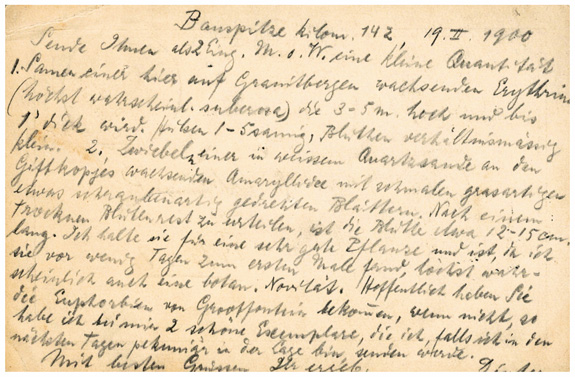 Bauspitze kilom. 142, 19. II. 1900
Sende Ihnen als 2 Eing. M. o. W. eine kleine Quantität
1. Samen einer hier auf Granitbergen wachsenden Erythrina
(höchst wahrscheinl. suberosa) die 3-5 m. hoch und bis
1' dick wird. Hülsen 1-5 samig, Blüthen verhältnismässig
klein. 2. Zwiebel einer in weissem Quartzsande an den
Giftkopjes wachsenden Amaryllidee mit schmalen grasartigen
etwas schraubenartig gedrehten Blättern. Nach einem
trocknen Blütenrest zu urteilen, ist die Blüthe etwa 12-15 cm.
lang. Ich halte sie für eine sehr gute Pflanze und ist, da ich
sie vor wenig Tagen zum ersten Male fand, höchst wahr-
scheinlich auch eine botan. Novität. Hoffentlich haben Sie
die Euphorbien von Grootfontein bekommen, wenn nicht, so
habe ich bei mir 2 schöne Exemplare, die ich, falls ich in den
nächsten Tagen pekuniär in der Lage bin, senden werde.
Mit besten Grüssen Ihr ergeb.